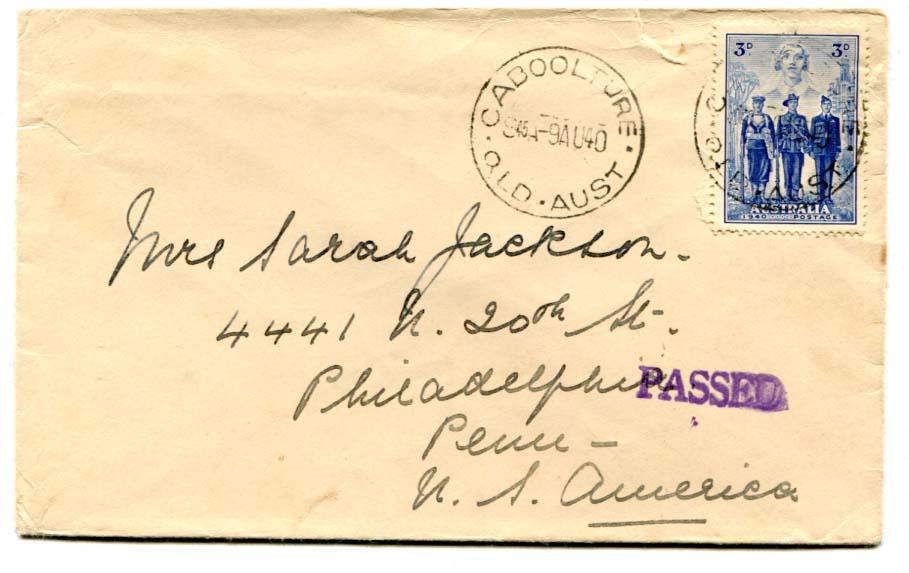 CABOOLTURE
945A-9AU40
QLD · AUST
3D 3D
AUSTRALIA
1940 POSTAGE
Mrs Sarah Jackson.
4441 N. 20th St.
Philadelphia
PASSED
Penn -
U. S. America